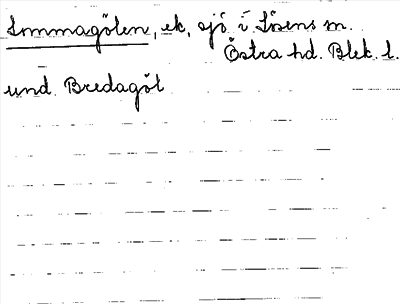 Sommagölen, ek, sjö i Lösens sn.
Östra hd. Blek. l.
und. Bredagöl